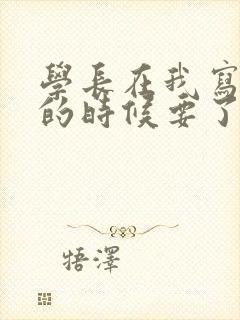 學長在我寫
的時候要了
牾澤